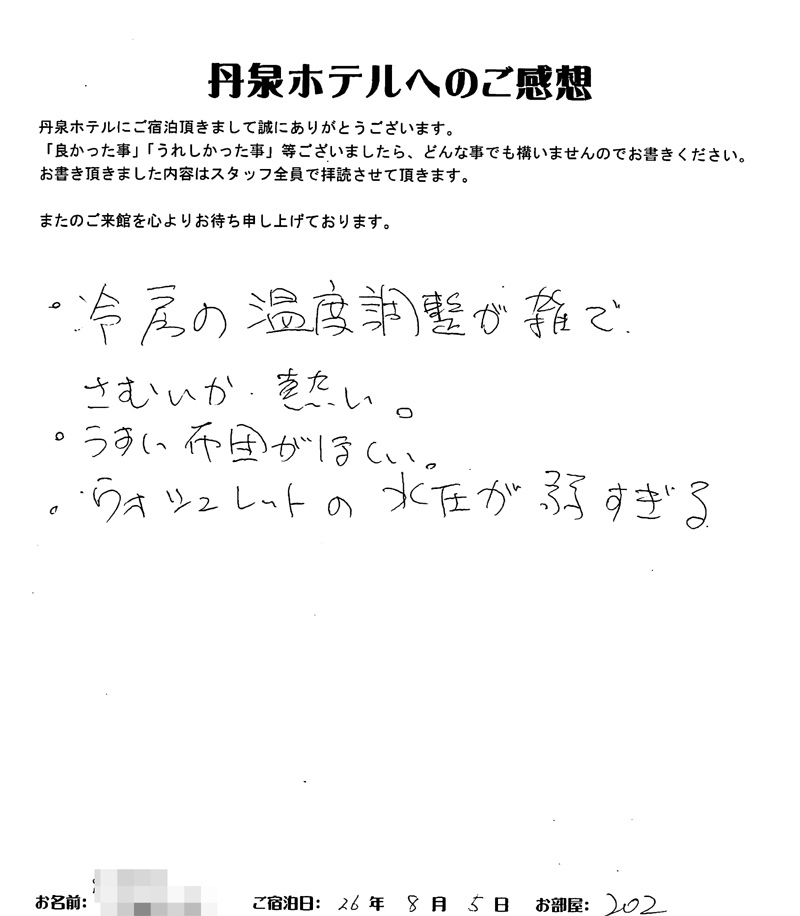 丹泉ホテルへのご感想
丹泉ホテルにご宿泊頂きまして誠にありがとうございます。
「良かった事」「うれしかった事」等ございましたら、どんな事でも構いませんのでお書きください。
お書き頂きました内容はスタッフ全員で拝読させて頂きます。
またのご来館を心よりお待ち申し上げております。
・冷房の温度調整が雑で、
さむいか、熱い。
・うすい布団がほしい。
・ウォシュレットの水圧が弱すぎる
お名前: ご宿泊日: 26年 8月 5日 お部屋: 202